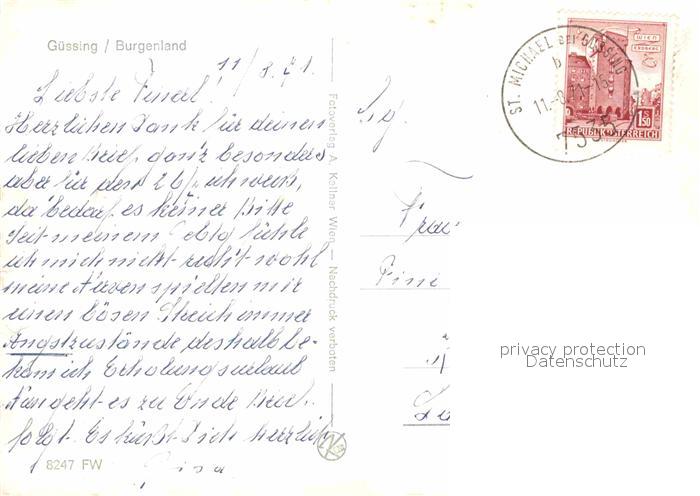 Güssing / Burgenland
11/8.71.
Liebste Finerl!
Herzlichen Dank für deinen
lieben Brief ganz besonders
aber für den 26 ich weiß,
da bedarf es keiner Bitte
Seit meinem fühle
ich mich nicht recht wohl
meine Nerven spielten mir
einen bösen Streich immer
Angstzustände deshalb be-
kam ich Erholungsurlaub
Nun geht es zu Ende Brief
folgt. Es küßt Dich herzlich
8247 FW
Fotoverlag A. Kellner Wien — Nachdruck verboten
Frau
Fine
ST. MICHAEL BEI GÜSSING
b
11.-8.71-15
7535
WIEN
ERDBERG
S 1.50
REPUBLIK ÖSTERREICH
privacy protection
Datenschutz